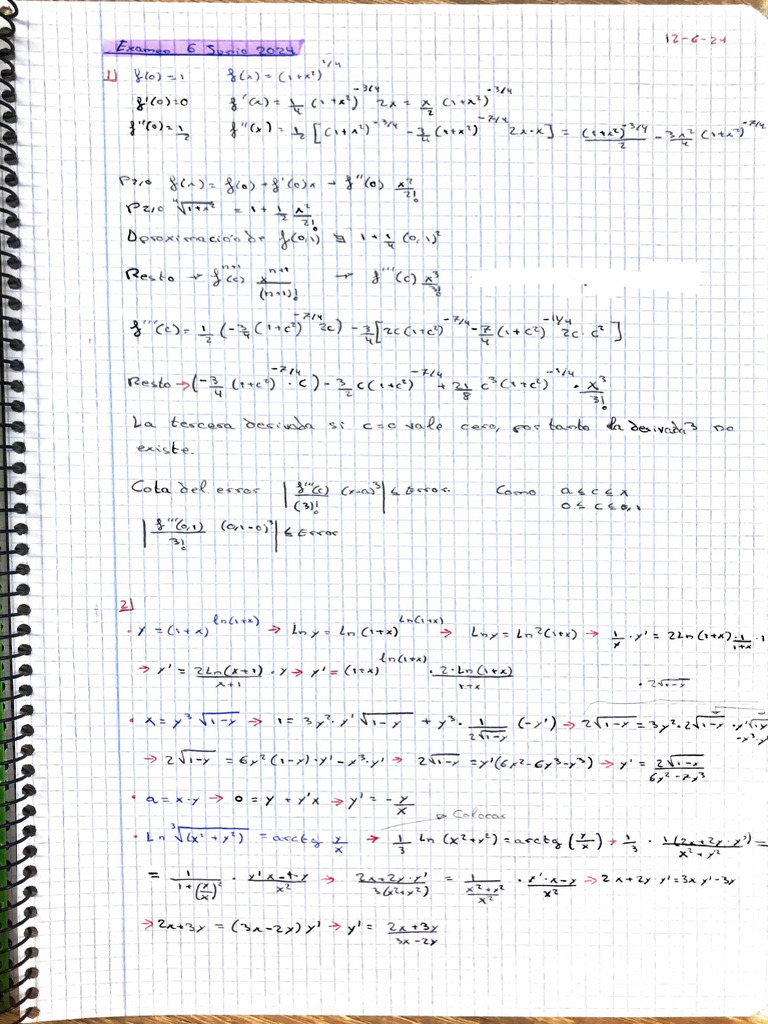 12-6-24
Examen 6 Junio 2024
1) f(0)=1 f(x) = (1+x²)^1/4
f'(0)=0 f'(x) = 1/4 (1+x²)^-3/4 2x = x/2 (1+x²)^-3/4
f''(0)=1/2 f''(x) = 1/2 [(1+x²)^-3/4 - 3/4 (1+x²)^-7/4 2x·x] = (1+x²)^-3/4/2 - 3x²/4 (1+x²)^-7/4
P2,0 f(x) = f(0) + f'(0)x + f''(0) x²/2!
P2,0 ⁴√(1+x²) = 1 + 1/2 x²/2!
Aproximación de f(0,1) ≅ 1 + 1/4 (0,1)²
Resto → f^n+1(c) x^n+1/(n+1)! → f'''(c) x³/3!
f'''(c) = 1/2 (-3/4 (1+c²)^-7/4 2c) - 3/4 [2c(1+c²)^-7/4 - 7/4 (1+c²)^-11/4 2c · c²]
Resto → (-3/4 (1+c²)^-7/4 · c) - 3/2 c(1+c²)^-7/4 + 21/8 c³(1+c²)^-11/4 · x³/3!
La tercera derivada si c=0 vale cero, por tanto la derivada 3 no
existe.
Cota del error |f'''(c)/(3)! (x-a)³| ≤ Error. Como a ≤ c ≤ x
0 ≤ c ≤ 0,1
|f'''(0,1)/3! (0,1-0)³| ≤ Error
2)
· y = (1+x)^ln(1+x) → Ln y = Ln (1+x)^Ln(1+x) → Ln y = Ln²(1+x) → 1/y · y' = 2Ln(1+x) · 1/1+x · 1
→ y' = 2Ln(x+1)/x+1 · y → y' = (1+x)^ln(1+x) · 2·Ln(1+x)/1+x
· 2√1-y
· x = y³ √1-y → 1 = 3y² · y' √1-y + y³ · 1/2√1-y (-y') → 2√1-y = 3y² · 2√1-y · y'√1-y
-y³·y'
→ 2√1-y = 6y² (1-y) · y' - y³·y' → 2√1-y = y'(6y² - 6y³ - y³) → y' = 2√1-y/6y² - 7y³
· a = x·y → 0 = y + y'x → y' = - y/x
Colocar
· Ln ³√(x² + y²) = arctg y/x → 1/3 Ln (x²+y²) = arctg (y/x) → 1/3 · 1(2x+2y·y')/x²+y² =
= 1/1+(y/x)² · y'x-1·y/x² → 2x+2y·y'/3(x²+y²) = 1/x²+y²/x² · y'·x-y/x² → 2x + 2y·y' = 3xy' - 3y
→ 2x+3y = (3x-2y) y' → y' = 2x+3y/3x-2y